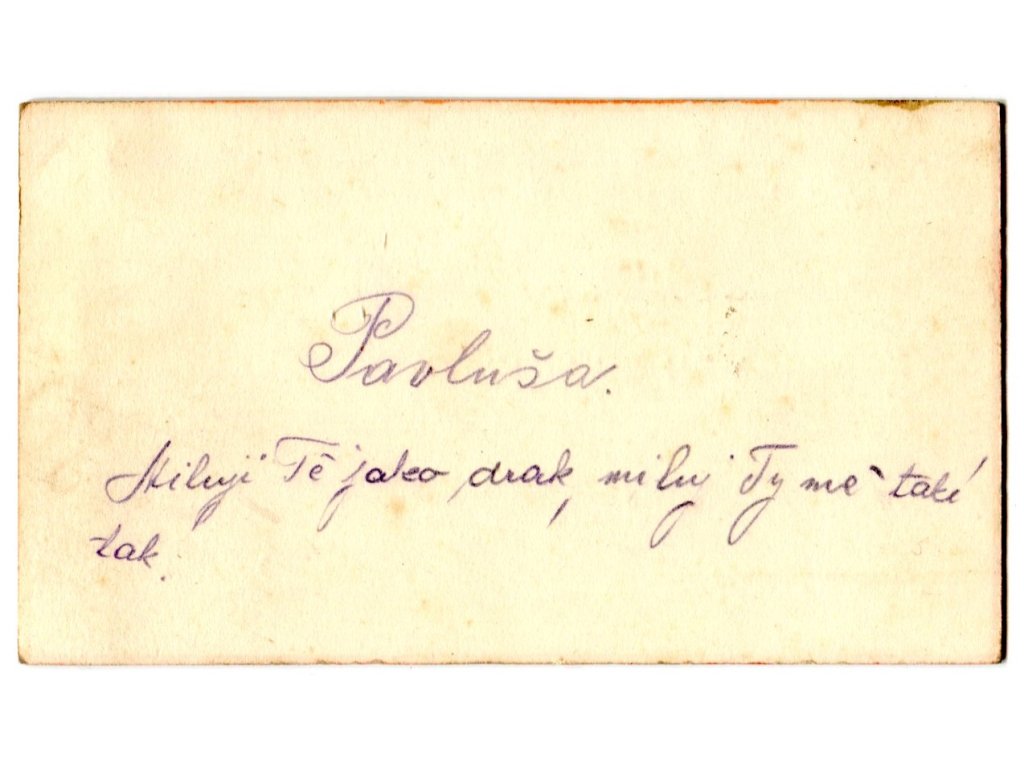 Pavluša.
Miluji Tě jako drak, miluj Ty mě také
tak.